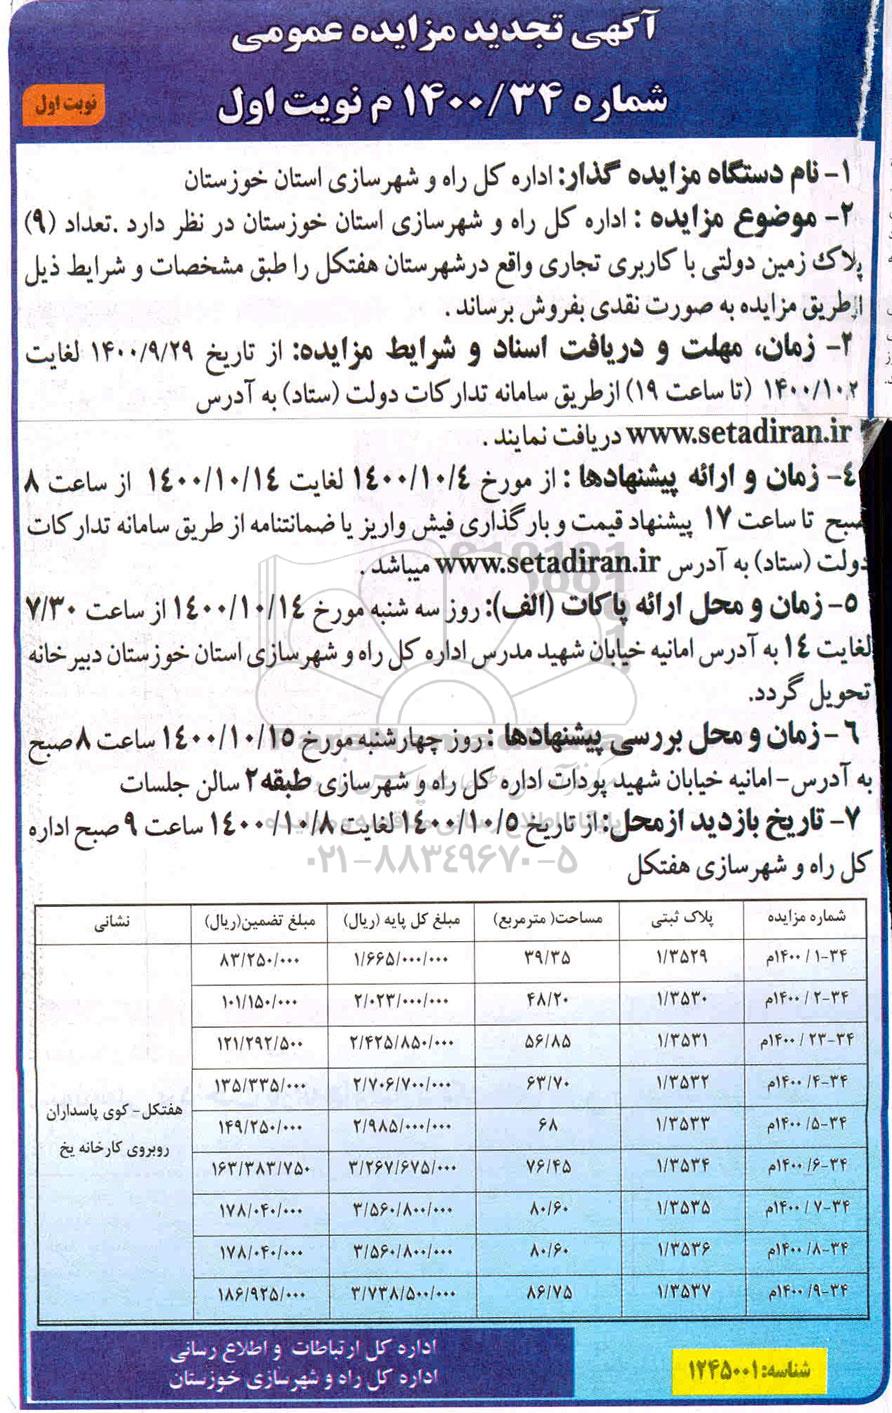 آگهی تجدید مزایده عمومی
شماره ۱۴۰۰/۳۴ م نوبت اول
نوبت اول
۱- نام دستگاه مزایده گذار: اداره کل راه و شهرسازی استان خوزستان
۲- موضوع مزایده : اداره کل راه و شهرسازی استان خوزستان در نظر دارد .تعداد (۹)
پلاک زمین دولتی با کاربری تجاری واقع درشهرستان هفتکل را طبق مشخصات و شرایط ذیل
ازطریق مزایده به صورت نقدی بفروش برساند .
۳- زمان، مهلت و دریافت اسناد و شرایط مزایده: از تاریخ ۱۴۰۰/۹/۲۹ لغایت
۱۴۰۰/۱۰/۲ (تا ساعت ۱۹) ازطریق سامانه تدارکات دولت (ستاد) به آدرس
www.setadiran.ir دریافت نمایند .
۴- زمان و ارائه پیشنهادها : از مورخ ۱۴۰۰/۱۰/۴ لغایت ۱۴۰۰/۱۰/۱۴ از ساعت ۸
صبح تا ساعت ۱۷ پیشنهاد قیمت و بارگذاری فیش واریز یا ضمانتنامه از طریق سامانه تدارکات
دولت (ستاد) به آدرس www.setadiran.ir میباشد .
۵- زمان و محل ارائه پاکات (الف): روز سه شنبه مورخ ۱۴۰۰/۱۰/۱۴ از ساعت ۷/۳۰
لغایت ۱۴ به آدرس امانیه خیابان شهید مدرس اداره کل راه و شهرسازی استان خوزستان دبیرخانه
تحویل گردد.
۶- زمان و محل بررسی پیشنهادها : روز چهارشنبه مورخ ۱۴۰۰/۱۰/۱۵ ساعت ۸ صبح
به آدرس- امانیه خیابان شهید پودات اداره کل راه و شهرسازی طبقه ۲ سالن جلسات
۷- تاریخ بازدید ازمحل: از تاریخ ۱۴۰۰/۱۰/۵ لغایت ۱۴۰۰/۱۰/۸ ساعت ۹ صبح اداره
کل راه و شهرسازی هفتکل
۰۲۱-۸۸۳۴۹۶۷۰-۵
شماره مزایده پلاک ثبتی مساحت( مترمربع) مبلغ کل پایه (ریال) مبلغ تضمین(ریال) نشانی
۱-۳۴ / ۱۴۰۰م ۱/۳۵۲۹ ۳۹/۳۵ ۱/۶۶۵/۰۰۰/۰۰۰ ۸۳/۲۵۰/۰۰۰
۲-۳۴ / ۱۴۰۰م ۱/۳۵۳۰ ۴۸/۲۰ ۲/۰۲۳/۰۰۰/۰۰۰ ۱۰۱/۱۵۰/۰۰۰
۲۳-۳۴ / ۱۴۰۰م ۱/۳۵۳۱ ۵۶/۸۵ ۲/۴۲۵/۸۵۰/۰۰۰ ۱۲۱/۲۹۲/۵۰۰
۴-۳۴/ ۱۴۰۰م ۱/۳۵۳۲ ۶۳/۷۰ ۲/۷۰۶/۷۰۰/۰۰۰ ۱۳۵/۳۳۵/۰۰۰
۵-۳۴/ ۱۴۰۰م ۱/۳۵۳۳ ۶۸ ۲/۹۸۵/۰۰۰/۰۰۰ ۱۴۹/۲۵۰/۰۰۰
هفتکل- کوی پاسداران
روبروی کارخانه یخ
۶-۳۴/ ۱۴۰۰م ۱/۳۵۳۴ ۷۶/۴۵ ۳/۲۶۷/۶۷۵/۰۰۰ ۱۶۳/۳۸۳/۷۵۰
۷-۳۴ / ۱۴۰۰م ۱/۳۵۳۵ ۸۰/۶۰ ۳/۵۶۰/۸۰۰/۰۰۰ ۱۷۸/۰۴۰/۰۰۰
۸-۳۴/ ۱۴۰۰م ۱/۳۵۳۶ ۸۰/۶۰ ۳/۵۶۰/۸۰۰/۰۰۰ ۱۷۸/۰۴۰/۰۰۰
۹-۳۴/ ۱۴۰۰م ۱/۳۵۳۷ ۸۶/۷۵ ۳/۷۳۸/۵۰۰/۰۰۰ ۱۸۶/۹۲۵/۰۰۰
اداره کل ارتباطات و اطلاع رسانی
اداره کل راه و شهرسازی خوزستان
شناسه: ۱۲۴۵۰۰۱